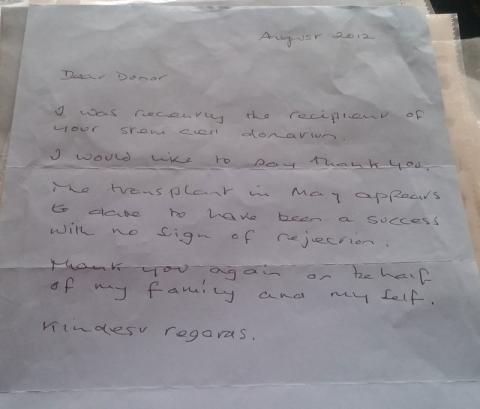 August 2012
Dear Donor
I was recently the recipient of
your stem cell donation.
I would like to say thank you.
The transplant in May appears
to date to have been a success
with no sign of rejection.
Thank you again on behalf
of my family and my self.
Kindest regards.